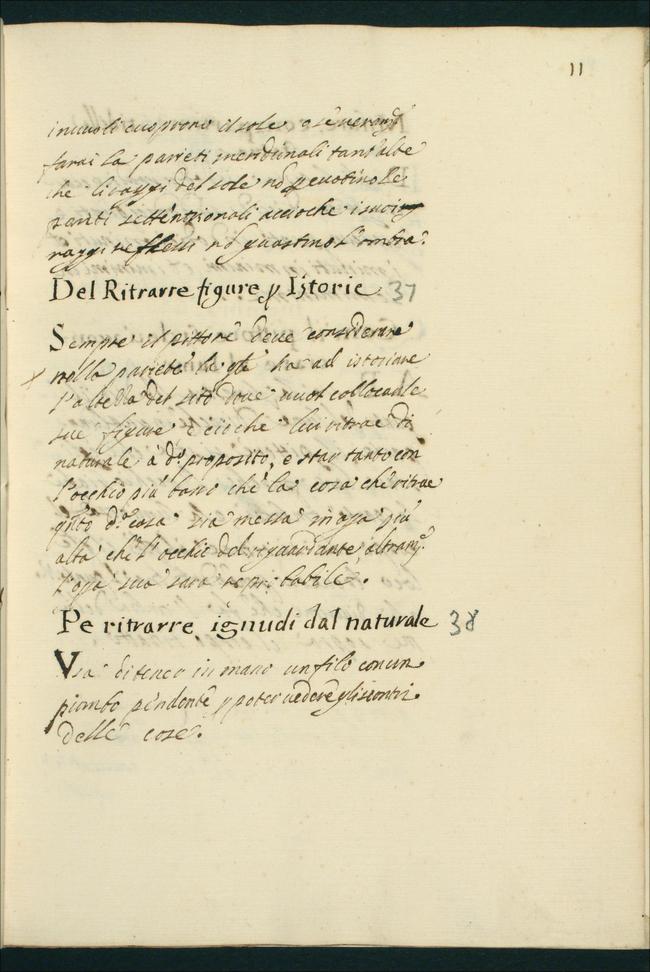 11
i nuuoli cuoprono il sole o se ueram.te
farai la parieti meridionali tant'alte
che li raggi del sole nō percotino le
parieti settentrionali accioche i suoi
raggi reflessi nō guastino l'ombra.
Del Ritrarre figure p Istorie 37
Sempre il pittore deue considerare
nella pariete la q̄le ha ad istoriare
l'altezza del sito doue uuol collocare le
sue figure e ciò che lui ritrae di
naturale à d.o proposito, e star tanto con
l'occhio più basso che la cosa che ritrae
q̄nto d.a cosa sia messa in opa più
alta che l'occhio del riguardante altram.te
l'opa sua sarà reprobabile.
Pe ritrarre ignudi dal naturale 38
Usa di tener in mano un filo con un
piombo pendente p poter uedere gli scontri
delle cose.